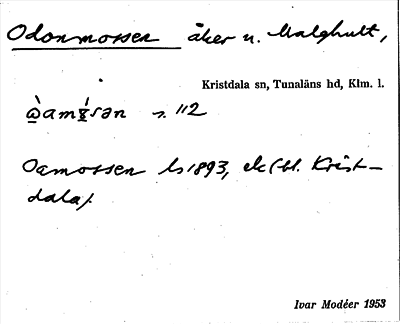 Odonmossen åker u. Malghult,
Kristdala sn, Tunaläns hd, Klm. l.
112
Oamossen ls 1893, ek (bl. Krist-
dala).
Ivar Modéer 1953